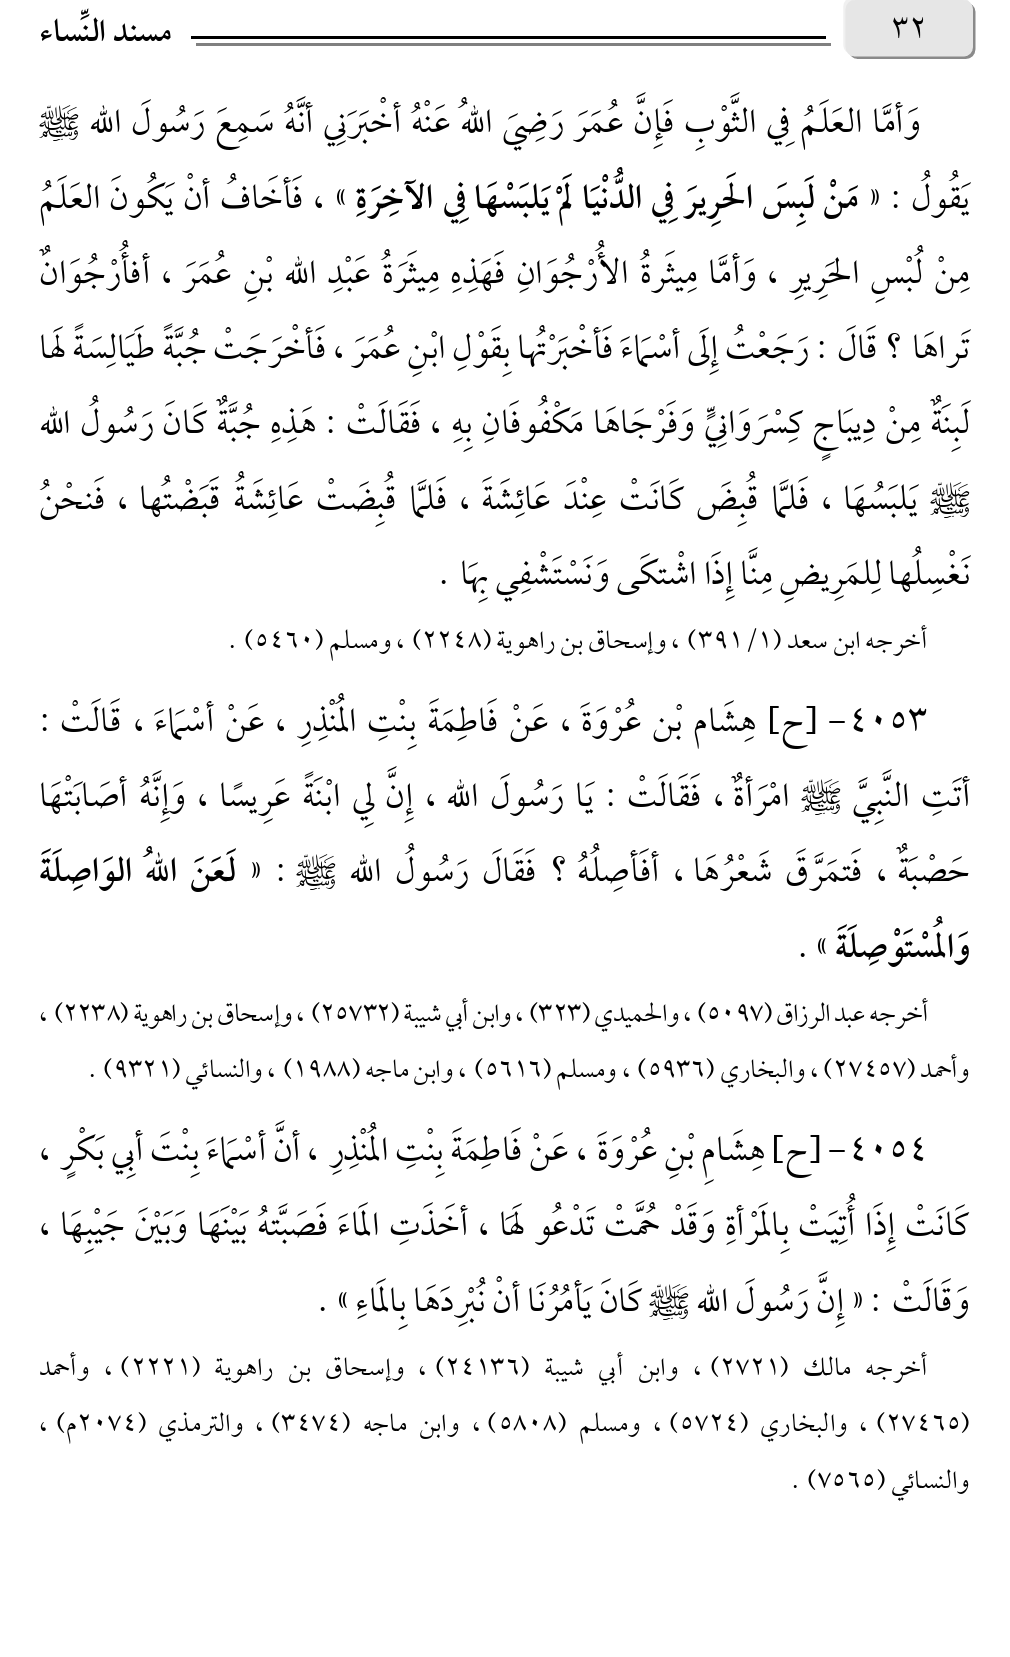 ٣٢
مسند النِّساء
وَأمَّا العَلَمُ فِي الثَّوْبِ فَإِنَّ عُمَرَ رَضِيَ اللهُ عَنْهُ أخْبَرَنِي أنَّهُ سَمِعَ رَسُولَ الله ﷺ
يَقُولُ : « مَنْ لَبِسَ الحَرِيرَ فِي الدُّنْيَا لَمْ يَلبَسْهَا فِي الآخِرَةِ » ، فَأخَافُ أنْ يَكُونَ العَلَمُ
مِنْ لُبْسِ الحَرِيرِ ، وَأمَّا مِيثَرةُ الأُرْجُوَانِ فَهَذِهِ مِيثَرَةُ عَبْدِ الله بْنِ عُمَرَ ، أفأُرْجُوَانٌ
تَراهَا ؟ قَالَ : رَجَعْتُ إِلَى أسْمَاءَ فَأخْبَرْتُها بِقَوْلِ ابْنِ عُمَرَ ، فَأخْرَجَتْ جُبَّةً طَيَالِسَةً لَها
لَبِنَةٌ مِنْ دِيبَاجٍ كِسْرَوَانِيٍّ وَفَرْجَاهَا مَكْفُوفَانِ بِهِ ، فَقَالَتْ : هَذِهِ جُبَّةٌ كَانَ رَسُولُ الله
ﷺ يَلبَسُهَا ، فَلمَّا قُبِضَ كَانَتْ عِنْدَ عَائِشَةَ ، فَلمَّا قُبِضَتْ عَائِشَةُ قَبَضْتُها ، فَنحْنُ
نَغْسِلُها لِلمَرِيضِ مِنَّا إِذَا اشْتكَى وَنَسْتَشْفِي بِهَا .
أخرجه ابن سعد (١/ ٣٩١) ، وإسحاق بن راهوية (٢٢٤٨) ، ومسلم (٥٤٦٠) .
٤٠٥٣- [ح] هِشَام بْن عُرْوَةَ ، عَنْ فَاطِمَةَ بِنْتِ المُنْذِرِ ، عَنْ أسْمَاءَ ، قَالَتْ :
أتَتِ النَّبِيَّ ﷺ امْرَأةٌ ، فَقَالَتْ : يَا رَسُولَ الله ، إِنَّ لِي ابْنَةً عَرِيسًا ، وَإِنَّهُ أصَابَتْهَا
حَصْبَةٌ ، فَتمَرَّقَ شَعْرُهَا ، أفَأصِلُهُ ؟ فَقَالَ رَسُولُ الله ﷺ : « لَعَنَ اللهُ الوَاصِلَةَ
وَالمُسْتَوْصِلَةَ » .
أخرجه عبد الرزاق (٥٠٩٧) ، والحميدي (٣٢٣) ، وابن أبي شيبة (٢٥٧٣٢) ، وإسحاق بن راهوية (٢٢٣٨) ،
وأحمد (٢٧٤٥٧) ، والبخاري (٥٩٣٦) ، ومسلم (٥٦١٦) ، وابن ماجه (١٩٨٨) ، والنسائي (٩٣٢١) .
٤٠٥٤- [ح] هِشَامِ بْنِ عُرْوَةَ ، عَنْ فَاطِمَةَ بِنْتِ المُنْذِرِ ، أنَّ أسْمَاءَ بِنْتَ أبِي بَكْرٍ ،
كَانَتْ إِذَا أُتِيَتْ بِالمَرْأةِ وَقَدْ حُمَّتْ تَدْعُو لَهَا ، أخَذَتِ المَاءَ فَصَبَّتْهُ بَيْنَهَا وَبَيْنَ جَيْبِهَا ،
وَقَالَتْ : « إِنَّ رَسُولَ الله ﷺ كَانَ يَأمُرُنَا أنْ نُبْرِدَهَا بِالمَاءِ » .
أخرجه مالك (٢٧٢١) ، وابن أبي شيبة (٢٤١٣٦) ، وإسحاق بن راهوية (٢٢٢١) ، وأحمد
(٢٧٤٦٥) ، والبخاري (٥٧٢٤) ، ومسلم (٥٨٠٨) ، وابن ماجه (٣٤٧٤) ، والترمذي (٢٠٧٤م) ،
والنسائي (٧٥٦٥) .